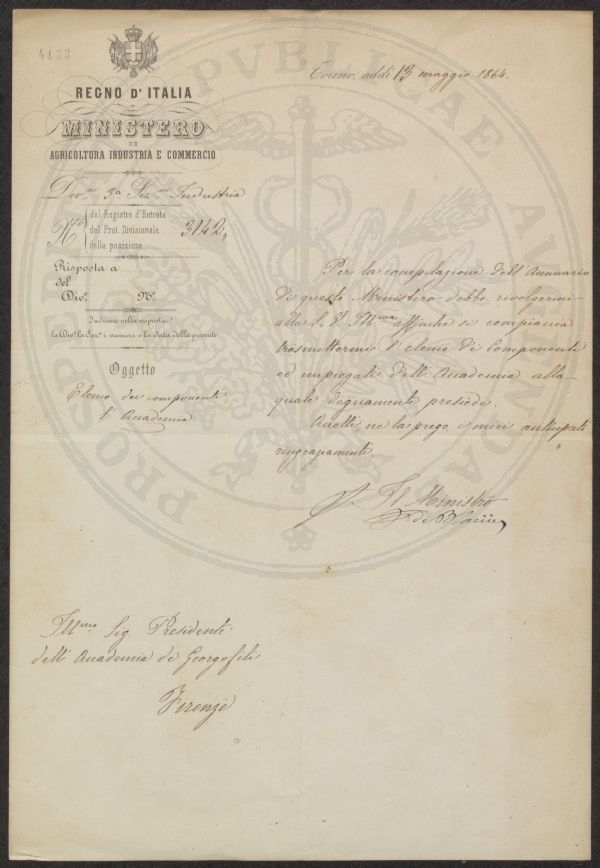 4133
REGNO D'ITALIA
MINISTERO
DI
AGRICOLTURA INDUSTRIA E COMMERCIO
Torino, addì 13 maggio 1864.
Div.ne 3a Sez.ne Industria
N.o del Registro d'Entrata
del Prot. Divisionale 3142
della posizione
Risposta a
del
Div.e N.o
Indicare nella risposta
la Div.e la Sez.e i numeri e la data della presente
Oggetto
Elenco dei componenti
l'Accademia
Per la compilazione dell'Annuario
di questo Ministero debbo rivolgermi
alla S. V. Ill.ma affinchè si compiaccia
trasmettermi l'elenco dei Componenti
ed impiegati dell'Accademia alla
quale degnamente presiede.
Accetti, ne la prego, i miei anticipati
ringraziamenti.
Il Ministro
Ill.mo Sig. Presidente
dell'Accademia dei Georgofili
Firenze